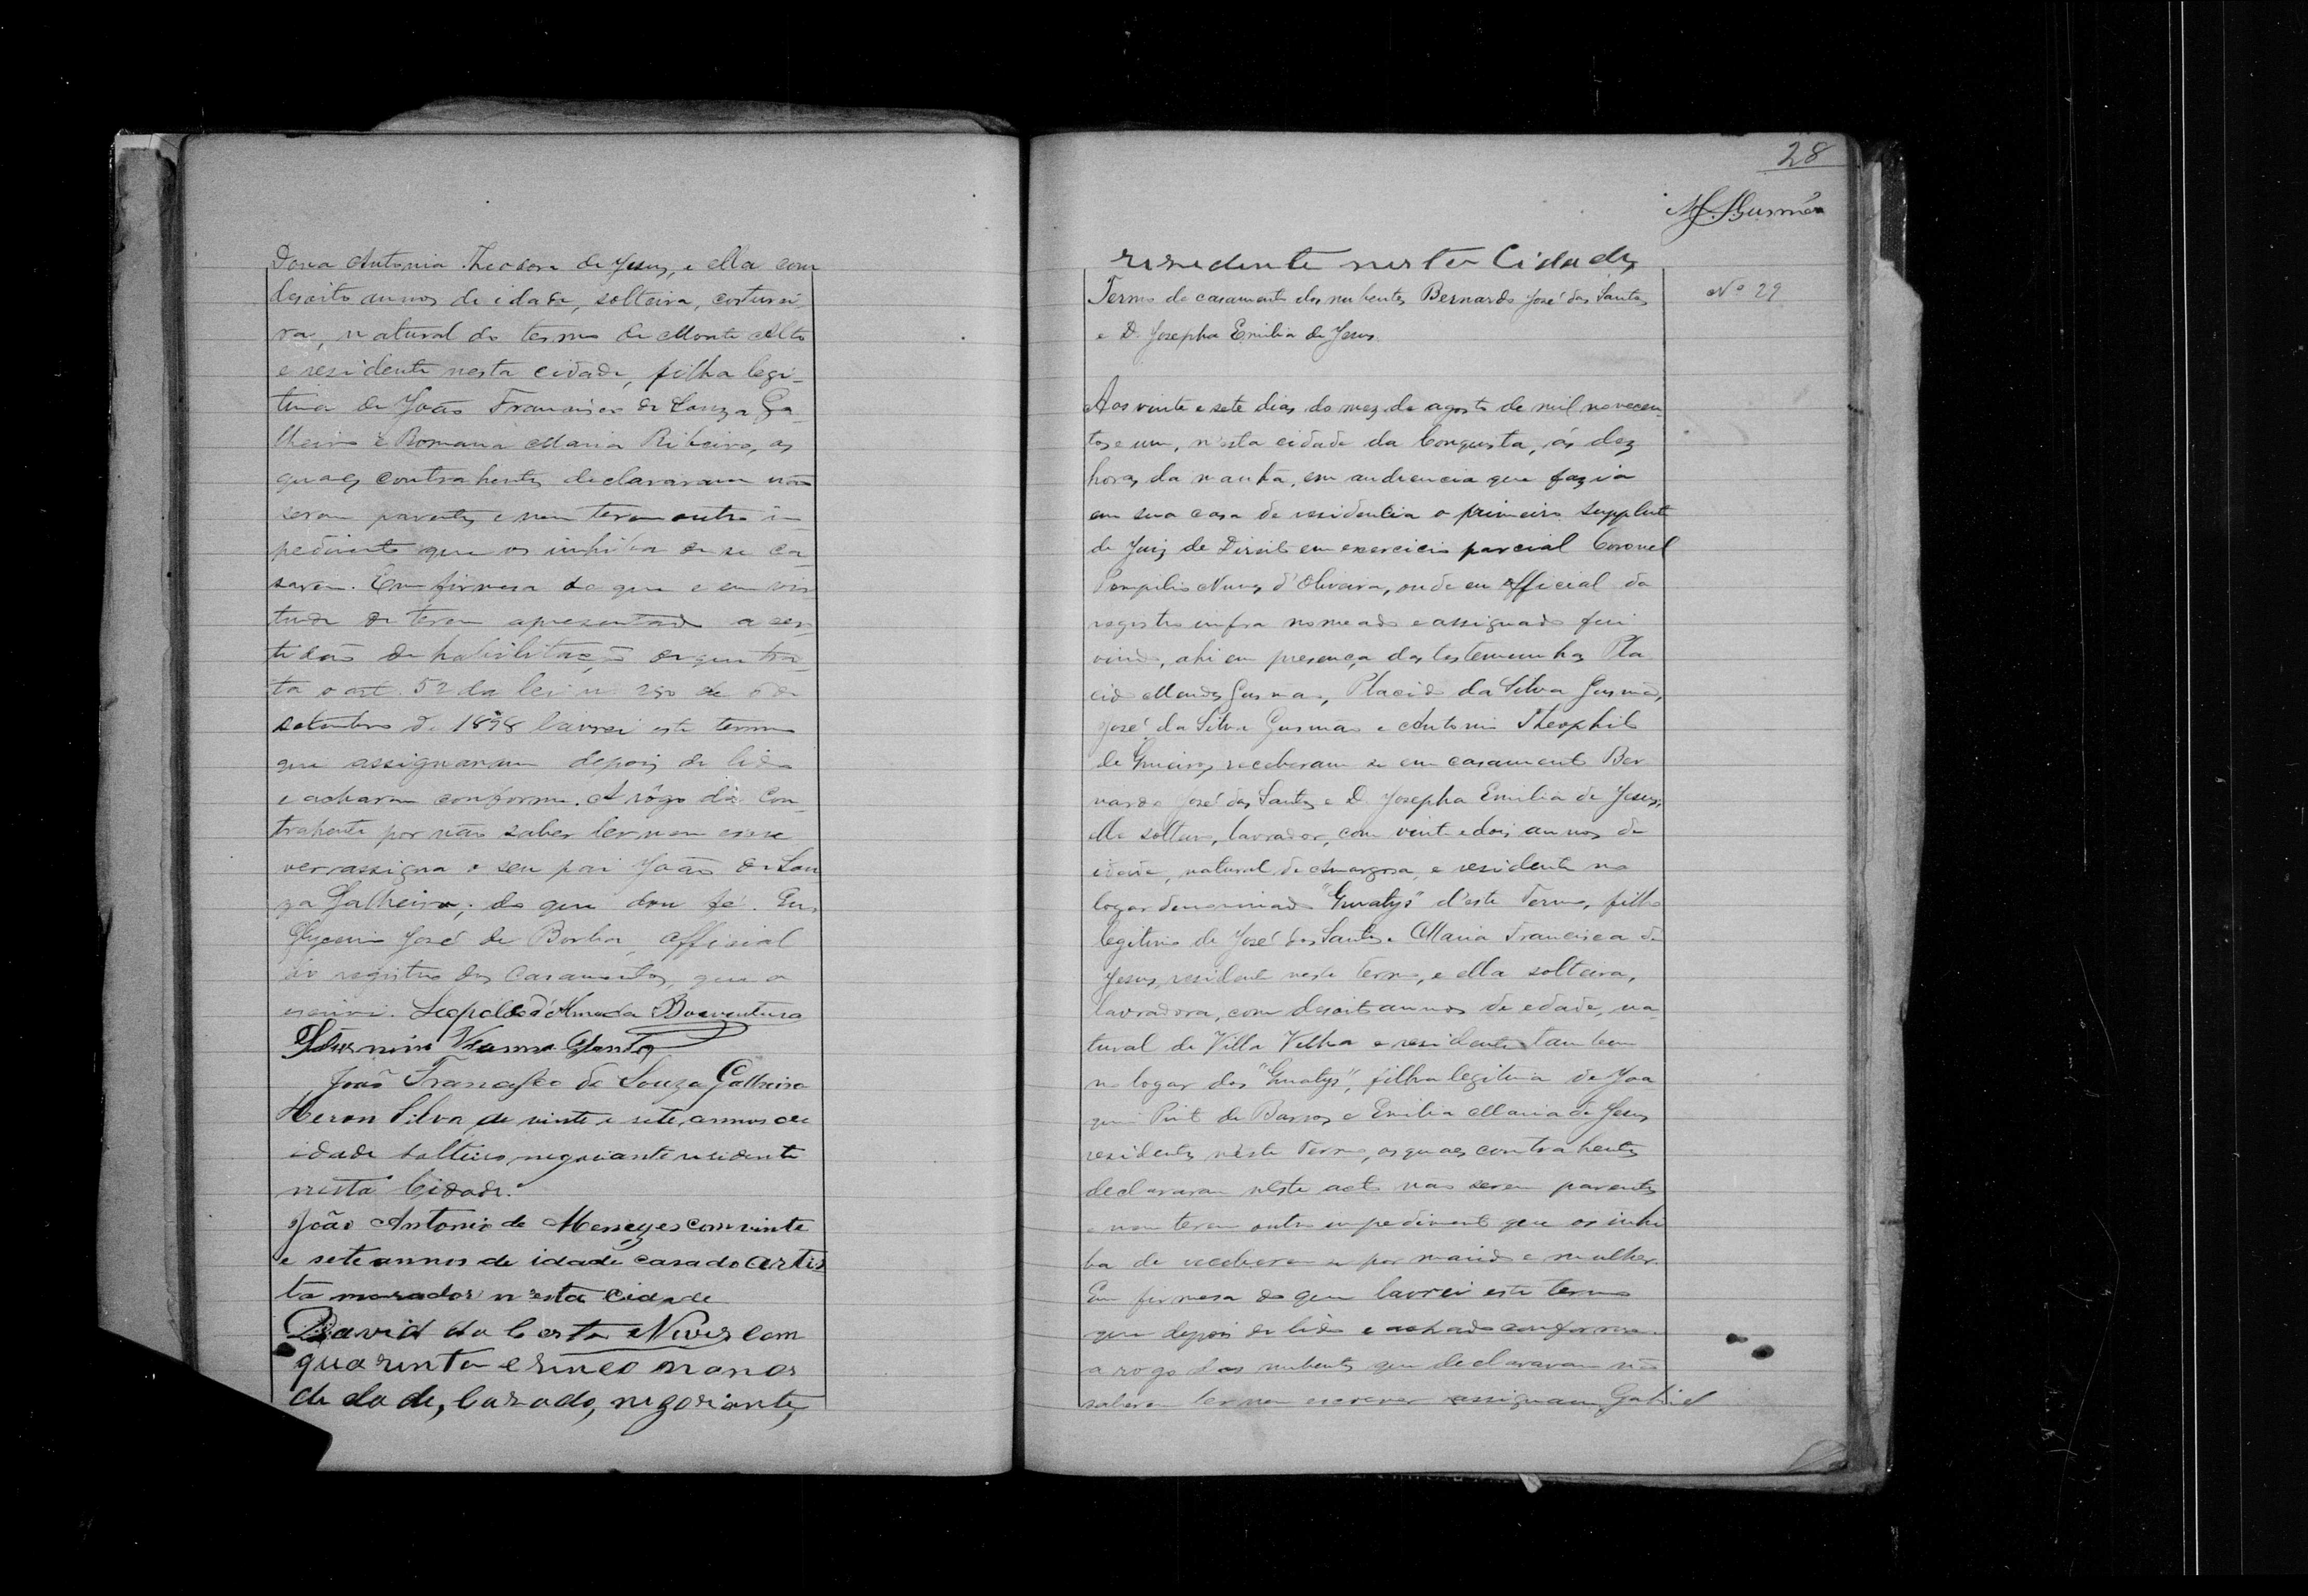 Dona Antonia Theodora de Jesus, e ella com
desoito annos de idade, solteira, costurei
ra, natural do termo de Monte Alto
e residente nesta cidade, filha legi-
tima de João Francisco de Souza Ga-
lheiro e Romana Maria Ribeiro, os
quaes contrahentes declararam não
serem parentes e nem terem outro im
pedimento que os inhiba de se ca-
sarem. Em firmesa do que e em vir
tude de terem apresentado a cer-
tidão de habilitação de que tra-
ta o art. 52 da lei n. 250 de 6 de
setembro de 1898 lavrei este termo
que assignaram depois de lido
e acharem conforme. A rôgo da con-
trahente por não saber ler nem escre
ver assigna o seu pai João de Sou
za Galheiro; do que dou fé. Eu,
Glycerio José de Borba, official
do registro dos casamentos, que o
escrivi. Leopoldo d'Almeida Boaventura
João Francisco de Souza Galheiro
Heron Silva, de vinte e sete annos de
idade solteiro, negociante residente
nesta Cidade.
João Antonio de Menezes com vinte
e sete annos de idade casado artis
ta morador n'esta cidade
David da Costa Neves com
quarenta e sinco annos
de dade, Casado, negosiante,
28
residente nesta Cidade,
Termo de casamento dos nubentes Bernardo José dos Santos
Nº 29
e D. Josepha Emilia de Jesus.
Aos vinte e sete dias do mez de agosto de mil novecen-
tos e um, n'esta cidade da Conquista, ás dez
horas da manhã, em audiencia que fazia
em sua casa de residencia o primeiro supplente
de Juiz de Direito em exercicio parcial Coronel
Pompilio Nunes d'Oliveira, onde eu official do
registro infra nomeado e assignado fui
vindo, ahi em presença das testemunhas Pla
cido Mendes Gusmão, Placido da Silva Gusmão,
José da Silva Gusmão e Antonio Theophilo
de receberam se em casamento Ber
nardo José dos Santos e D. Josepha Emilia de Jesus,
elle solteiro, lavrador, com vinte e dois annos de
idade, natural de Amargosa, e residente no
logar denominado d'este Termo, filho
legitimo de José dos Santos e Maria Francisca de
Jesus, residente neste termo, e ella solteira,
lavradora, com desoito annos de edade, na-
tural de Villa Velha e residente tambem
no logar dos filha legitima de Joa
quim de Barros e Emilia Maria de Jesus
residentes neste Termo, os quaes contrahentes
declararam neste acto não serem parentes
e nem terem outro impedimento que os inhi
ba de receberem se por marido e mulher.
Em firmesa do que lavrei este termo
que depois de lido e achado conforme
a rogo dos nubentes que declararam não
saberem ler nem escrever assignam Gabriel